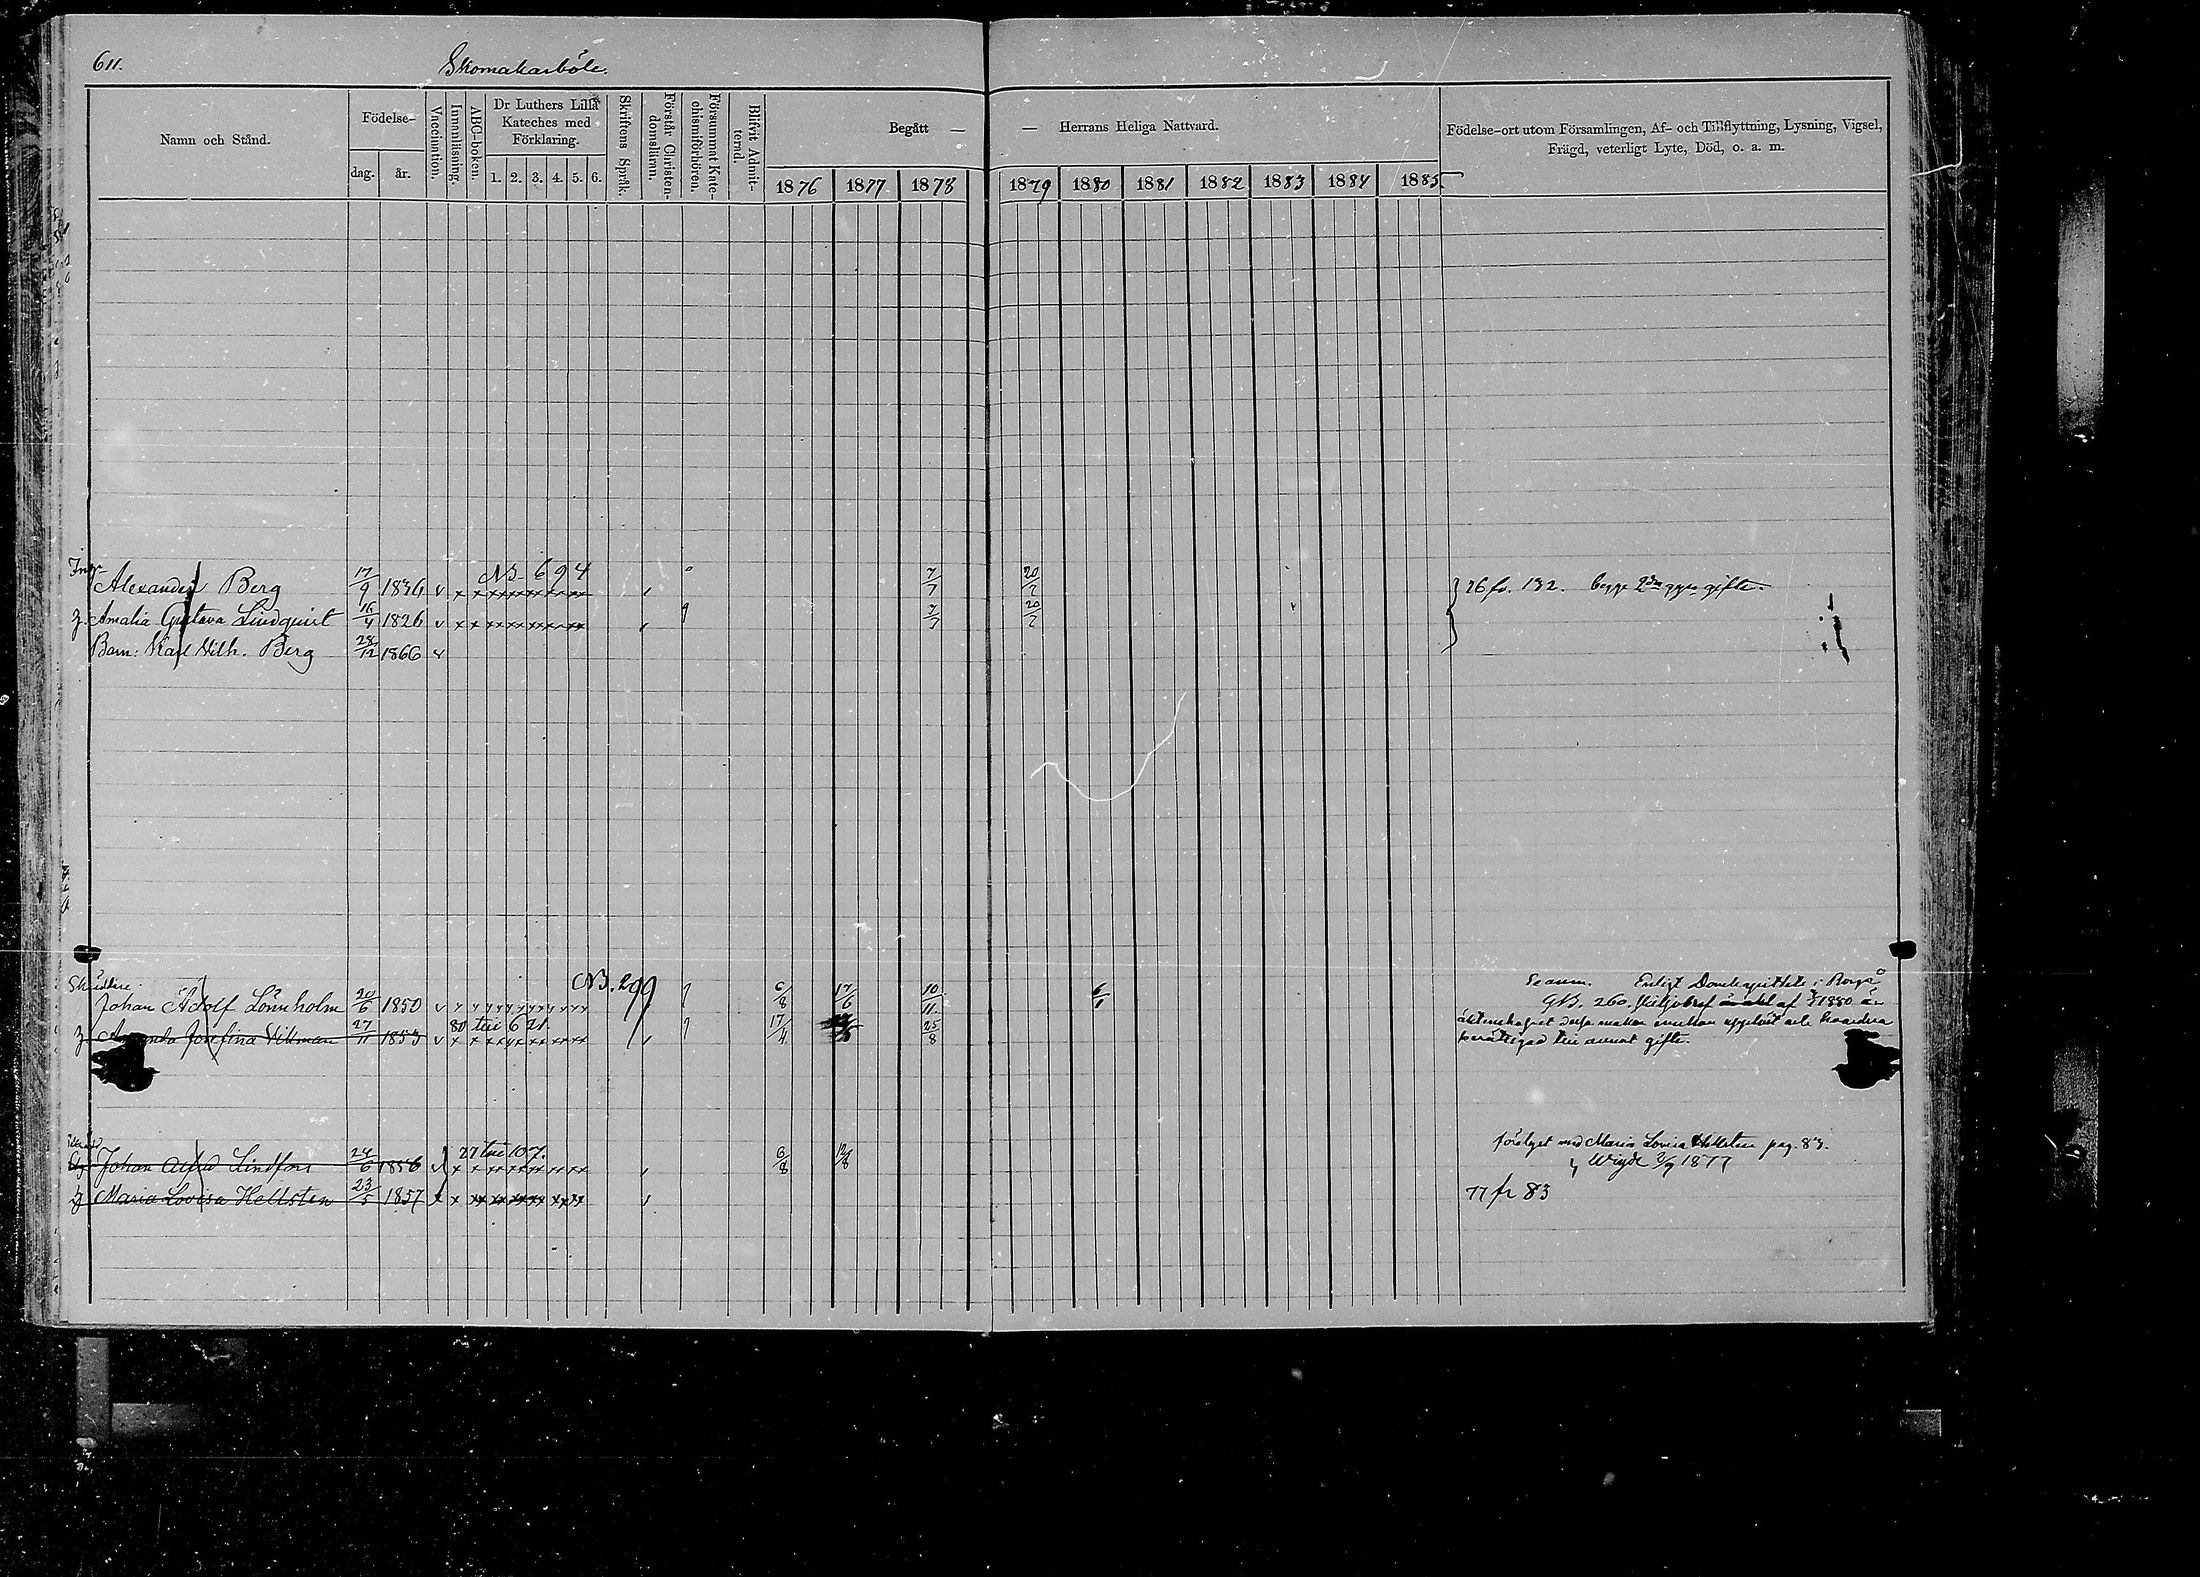 611.
Skomakarböle.
Namn och Stånd.
Födelse-
dag.
år.
Vaccination.
Innanläsning.
ABC-boken.
Dr Luthers Lilla
Kateches med
Förklaring.
1. 2. 3. 4. 5. 6.
Skriftens Språk.
Förstår Christen-
domslärnn.
Försummat Kate-
chismiförhören.
Blifvit Admit-
terad.
Begått —
— Herrans Heliga Nattvard.
1876 1877 1878 1879 1880 1881 1882 1883 1884 1885
Födelse-ort utom Församlingen, Af- och Tillflyttning, Lysning, Vigsel,
Frägd, veterligt Lyte, Död, o. a. m.
NB. 694
Alexander Berg 17/9 1836 v x x x x x x x x 7/7 20/7 76 fr. 132. begge 2dra ggn gifte.
h. Amalia Gustava Lindqvist 16/4 1826 v x x x x x x x x 7/7 20/7
Barn: Karl Vilh. Berg 28/12 1866 v
NB. 299
Johan Adolf Lönnholm 20/6 1850 6/8 17/6 10/11 6/1
80 till 621.
h Amanda Josefina Vikman 27/11 1853 v x x x x x x x x 17/4 25/8
Enligt Domkapitlets i Borgå
260. skiljobref af 1880 är
äktenskapet makar emellan upplöst och hvardera
berättigad till annat gifte.
27 till 107.
Johan Alfred Lindfors 24/6 1856 v x x x x x x x x 6/8 12/8
förlyst med Maria Lovisa Hellsten pag. 83.
Wigde 2/9 1877
h Maria Lovisa Hellsten 23/5 1857 x x x x x x x x
77 fr 83